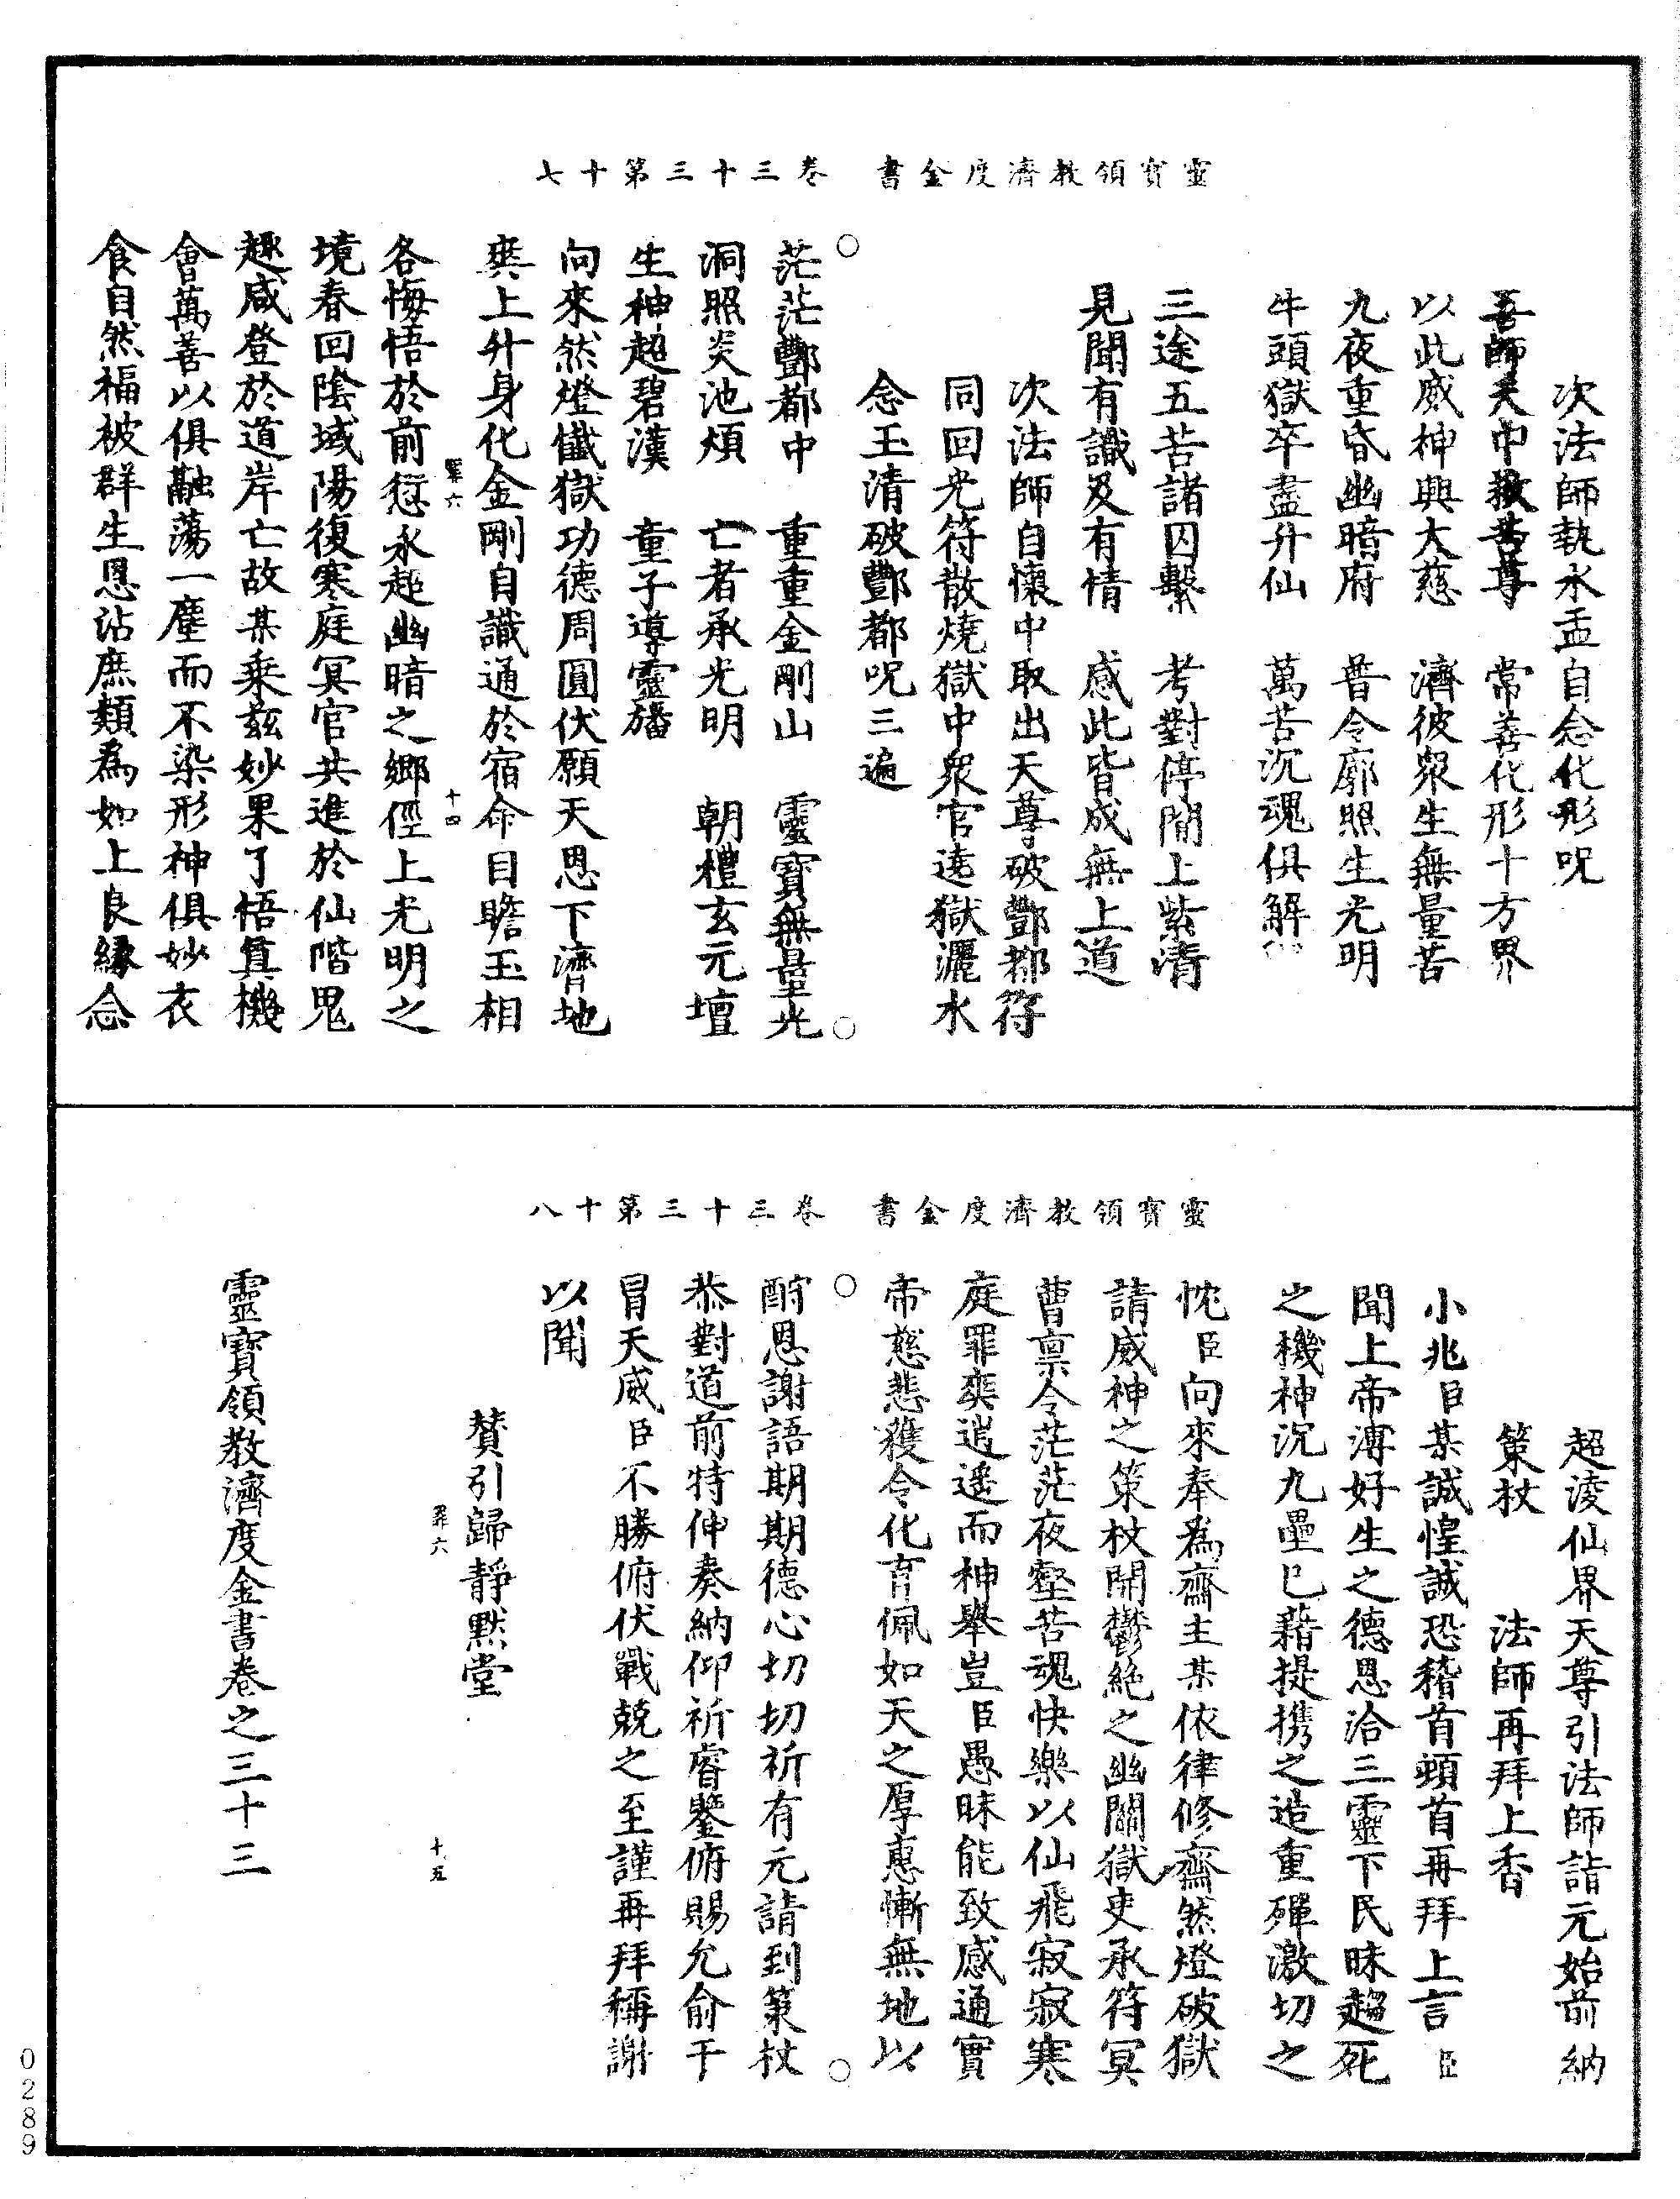 靈寶領教濟度金書　卷三十三第十七
次法師執水盂自念化形呪
吾師天中救苦尊　常善化形十方界
以此威神興大慈　濟彼衆生無量苦
九夜重昏幽暗府　普令廓照生光明
牛頭獄卒盡升仙　萬苦沉魂俱解
三途五苦諸囚繫　考對停閒上紫清
見聞有識及有情　感此皆成無上道
次法師自懷中取出天尊破酆都符
同回光符散燒獄中衆官遶獄灑水
念玉清破酆都呪三遍
茫茫酆都中　重重金剛山　靈寶無量光
洞照炎池煩　亡者承光明　朝禮玄元壇
生神超碧漢　童子導靈旛
向來然燈懺獄功德周圓伏願天恩下濟地
爽上升身化金剛自識通於宿命目瞻玉相
各悔悟於前愆永超幽暗之鄉徑上光明之
境春回陰域陽復寒庭冥官共進於仙階鬼
趣咸登於道岸亡故某乘茲妙果了悟真機
會萬善以俱融蕩一塵而不染形神俱妙衣
食自然福被群生恩沾庶類為如上良緣念
十四
靈寶領教濟度金書　卷三十三第十八
超凌仙界天尊引法師詣元始前納
策杖　　法師再拜上香
小兆臣某誠惶誠恐稽首頓首再拜上言臣
聞上帝溥好生之德恩洽三靈下民昧趨死
之機神沉九壘已藉提携之造重殫激切之
忱臣向來奉為齋主某依律修齋然燈破獄
請威神之策杖開鬱絕之幽關獄吏承符冥
曹禀令茫茫夜壑苦魂快樂以仙飛寂寂寒
庭罪爽逍遥而神舉豈臣愚昧能致感通實
帝慈悲獲令化育佩如天之厚惠慚無地以
酧恩謝語期期德心切切祈有元請到策杖
恭對道前特伸奏納仰祈睿鑒俯賜允俞干
冒天威臣不勝俯伏戰兢之至謹再拜稱謝
以聞
贊引歸靜默堂
十五
靈寶領教濟度金書卷之三十三
0289